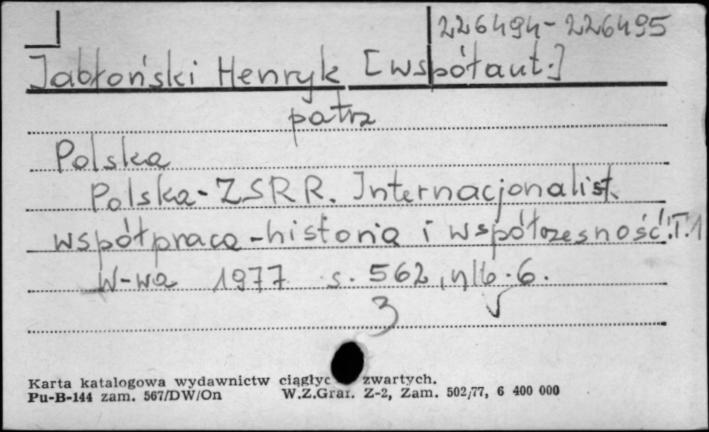 226494-226495
Jabłoński Henryk [współaut.]
patrz
Polska
Polska-ZSRR. Internacjonalist.
współpraca-historia i współczesność. T.1
W-wa 1977 s. 562, nlb. 6.
3
Karta katalogowa wydawnictw ciągłyc zwartych.
Pu-B-144 zam. 567/DW/On W.Z.Graf. Z-2, Zam. 502/77, 6 400 000